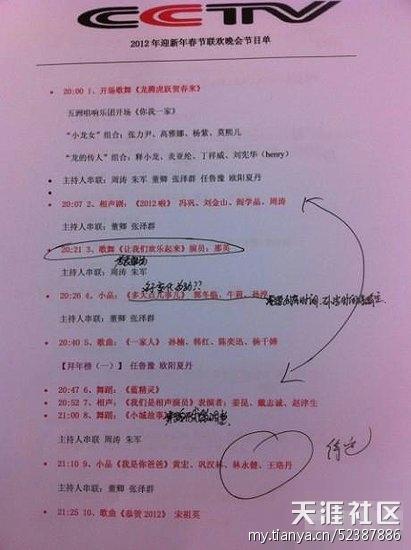 CCTV
2012年迎新年春节联欢晚会节目单
20:00 1、开场歌舞《龙腾虎跃贺春来》
五洲唱响乐团开场《你我一家》
“小龙女”组合：张力尹、高雅娜、杨紫、莫熙儿
“龙的传人”组合：释小龙、麦亚纶、丁祥威、刘宪华（henry）
主持人串联：周涛 朱军 董卿 张泽群 任鲁豫 欧阳夏丹
20:07 2、相声剧：《2012啦》 冯巩、刘金山、阎学晶、周涛
主持人串联：董卿 张泽群
20:21 3、歌舞《让我们欢乐起来》演员：那英
主持人串联：周涛 朱军
20:26 4、小品：《多大点儿事儿》 郭冬临、牛莉
主持人串联：董卿 张泽群
20:40 5、歌曲：《一家人》 孙楠、韩红、陈奕迅、杨千嬅
【拜年榜（一）】 任鲁豫 欧阳夏丹
20:47 6、舞蹈：《蓝精灵》
20:52 7、相声：《我们是相声演员》表演者：姜昆、戴志诚、赵津生
21:00 8、舞蹈：《小城故事》
主持人串联 周涛 朱军
21:10 9、小品《我是你爸爸》黄宏、巩汉林、林永健、王珞丹
主持人串联：董卿 张泽群
21:25 10、歌曲《恭贺 2012》 宋祖英
待定
天涯社区
my.tianya.cn/52387886